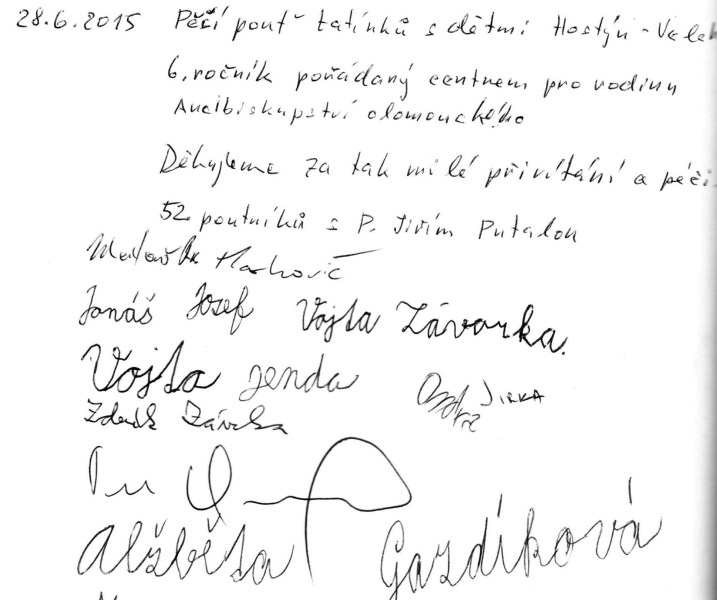 28.6.2015 Pěší pouť tatínků s dětmi Hostýn - Veleh
6. ročník pořádaný centrem pro rodinu
Arcibiskupství olomouckého
Děkujeme za tak milé přivítání a péči
52 poutníků s P. Jiřím Putalou
Jonáš Josef Vojta Závorka.
Vojta Jenda JIRKA
Alžběta Gazdíková